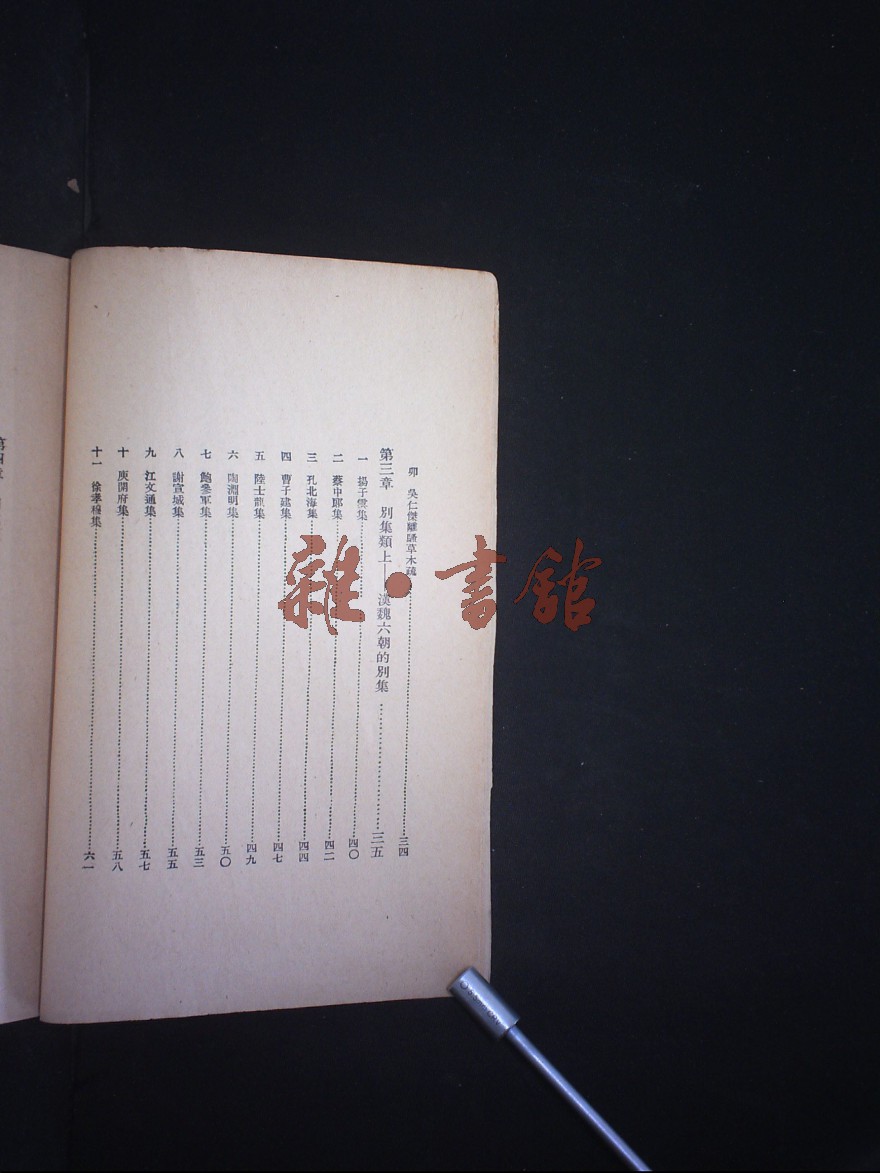 卯 吳仁傑離騷草木疏 三四
第三章 別集類上——漢魏六朝的別集 三五
一 揚子雲集 四〇
二 蔡中郎集 四二
三 孔北海集 四四
四 曹子建集 四七
五 陸士龍集 四九
六 陶淵明集 五〇
七 鮑參軍集 五三
八 謝宣城集 五五
九 江文通集 五七
十 庾開府集 五八
十一 徐孝穆集 六一
雜·書館